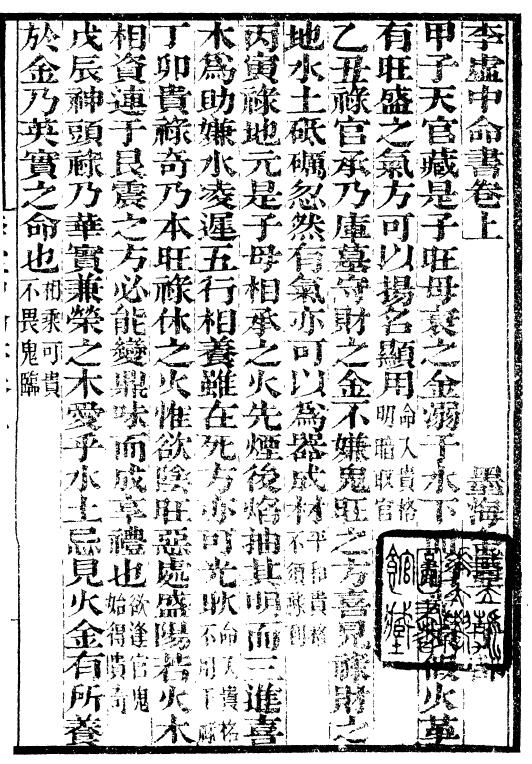 李虛中命書卷上 墨海
甲子天官藏是子旺母衰之金溺于水下而假火革
有旺盛之氣方可以揚名顯用命入貴格明暗収官
乙丑祿官承乃庫墓守財之金不嫌鬼旺之方喜見祿財之
地水土砥礪忽然有氣亦可以為器成材平和貴格不須祿
丙寅祿地元是子母相承之火先煙後焰抽其明而三進喜
木為助嫌水凌遲五行相養雖在死方亦可光耿命入貴格不用下祿
丁卯貴祿奇乃本旺祿休之火惟欲陰旺惡處盛陽若火木
相資連于艮震之方必能變鼎味而成享禮也欲逢官鬼始得貴奇
戊辰神頭祿乃華實兼榮之木愛乎水土忌見火金有所養
於金乃英實之命也相乘可貴不畏鬼臨